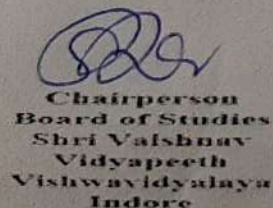 Chairperson
Board of Studies
Shri Vaishnav
Vidyapeeth
Vishwavidyalaya
Indore